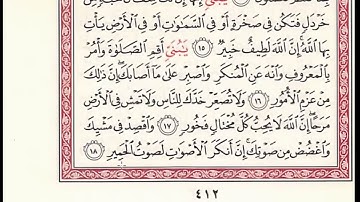 خَرْدَلٍ فَتَكُن فِى صَخْرَةٍ أَوْ فِى ٱلسَّمَٰوَٰتِ أَوْ فِى ٱلْأَرْضِ يَأْتِ
بِهَا ٱللَّهُ إِنَّ ٱللَّهَ لَطِيفٌ خَبِيرٌ ١٥ يَٰبُنَىَّ أَقِمِ ٱلصَّلَوٰةَ وَأْمُرْ
بِٱلْمَعْرُوفِ وَٱنْهَ عَنِ ٱلْمُنكَرِ وَٱصْبِرْ عَلَىٰ مَآ أَصَابَكَ إِنَّ ذَٰلِكَ
مِنْ عَزْمِ ٱلْأُمُورِ ١٦ وَلَا تُصَٰعِرْ خَدَّكَ لِلنَّاسِ وَلَا تَمْشِ فِى ٱلْأَرْضِ
مَرَحًا إِنَّ ٱللَّهَ لَا يُحِبُّ كُلَّ مُخْتَالٍ فَخُورٍ ١٧ وَٱقْصِدْ فِى مَشْيِكَ
وَٱغْضُضْ مِن صَوْتِكَ إِنَّ أَنكَرَ ٱلْأَصْوَٰتِ لَصَوْتُ ٱلْحَمِيرِ ١٨
٤١٢